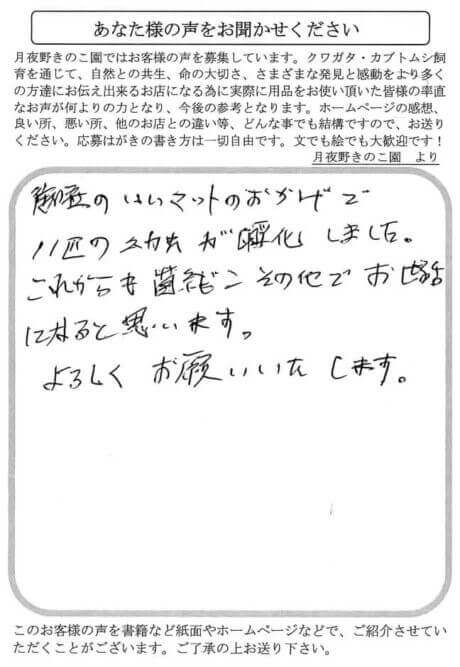 あなた様の声をお聞かせください
月夜野きのこ園ではお客様の声を募集しています。クワガタ・カブトムシ飼
育を通じて、自然との共生、命の大切さ、さまざまな発見と感動をより多く
の方達にお伝え出来るお店になる為に実際に用品をお使い頂いた皆様の率直
なお声が何よりの力となり、今後の参考となります。ホームページの感想、
良い所、悪い所、他のお店との違い等、どんな事でも結構ですので、お送り
ください。応募はがきの書き方は一切自由です。文でも絵でも大歓迎です！
月夜野きのこ園　より
のいいマットのおかげで
11匹の幼虫が孵化しました。
これからも菌糸ビンその他でお世話
になると思います。
よろしくお願いいたします。
このお客様の声を書籍など紙面やホームページなどで、ご紹介させてい
ただくことがございます。ご了承の上お送り下さい。